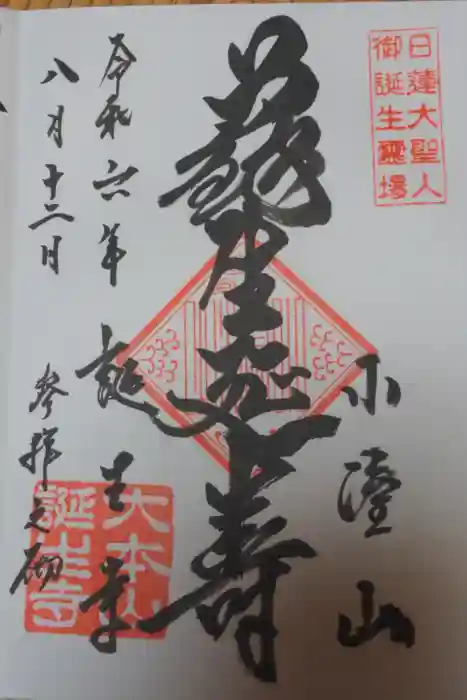 日蓮大聖人
御誕生靈場
小湊山
生延寿
令和六年 誕生寺
八月十二日 参拝之砌
大本山
誕生寺